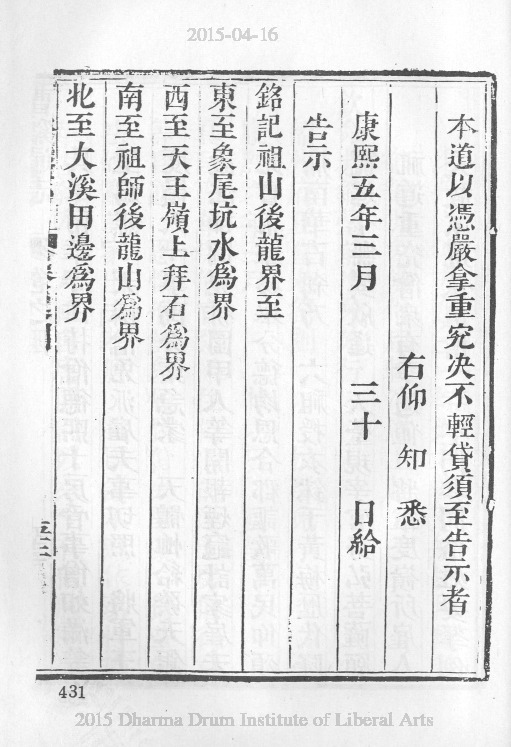 2015-04-16
本道以憑嚴拿重究决不輕貸須至告示者
右仰知悉
康熙五年三月三十日給
告示
銘記祖山後龍界至
東至象尾坑水爲界
西至天王嶺上拜石爲界
南至祖師後龍山爲界
北至大溪田邊爲界
431
2015 Dharma Drum Institute of Liberal Arts